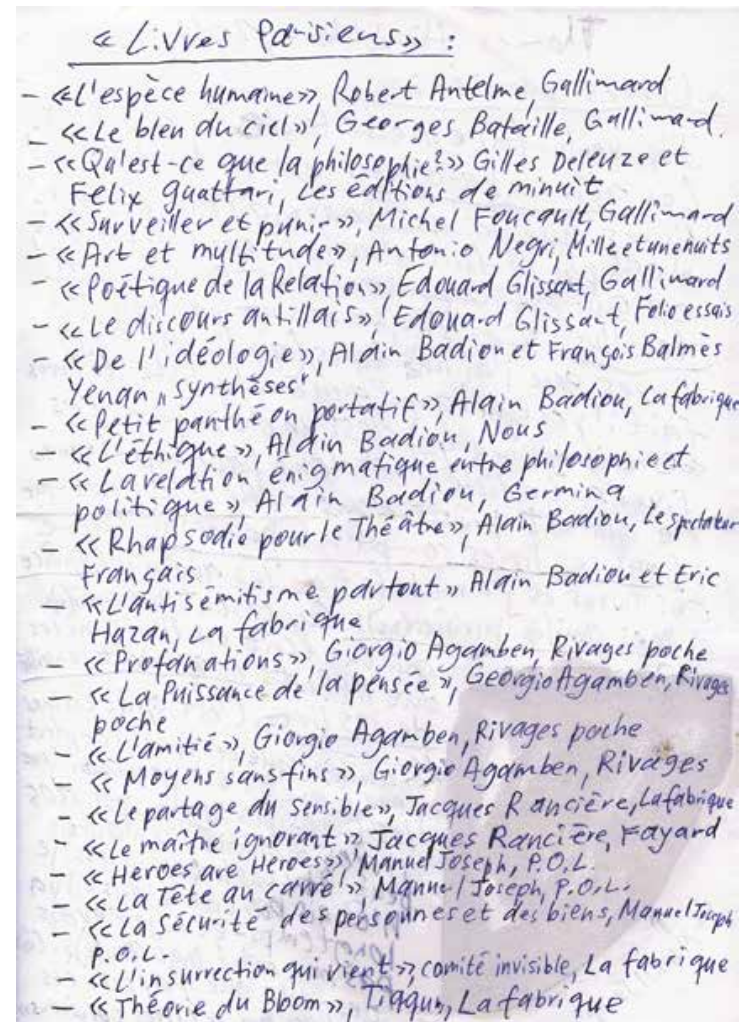 « Livres Parisiens» :
– «L'espèce humaine», Robert Antelme, Gallimard
– «Le bleu du ciel», Georges Bataille, Gallimard.
– «Qu'est-ce que la philosophie?» Gilles Deleuze et
Felix Guattari, Les éditions de minuit
– «Surveiller et punir», Michel Foucault, Gallimard
– «Art et multitude», Antonio Negri, Mille et une nuits
– «Poétique de la Relation», Edouard Glissant, Gallimard
– «Le discours antillais», Edouard Glissant, Folio essais
– «De l'idéologie», Alain Badiou et François Balmès
Yenan „synthèses"
– «Petit panthéon portatif», Alain Badiou, La fabrique
– «L'éthique», Alain Badiou, Nous
– «La relation énigmatique entre philosophie et
politique», Alain Badiou, Germina
– «Rhapsodie pour le Théâtre», Alain Badiou, Le spectateur
Français
– «L'antisémitisme partout» Alain Badiou et Eric
Hazan, La fabrique
– «Profanations», Giorgio Agamben, Rivages poche
– «La Puissance de la pensée», Georgio Agamben, Rivages
poche
– «L'amitié», Giorgio Agamben, Rivages poche
– «Moyens sans fins», Giorgio Agamben, Rivages
– «Le partage du sensible», Jacques Rancière, La fabrique
– «Le maître ignorant» Jacques Rancière, Fayard
– «Heroes are Heroes», Manuel Joseph, P.O.L.
– «La Tête au carré» Manuel Joseph, P.O.L.
– «La Sécurité des personnes et des biens, Manuel Joseph
P.O.L.
– «L'insurrection qui vient», comité invisible, La fabrique
– «Théorie du Bloom», Tiqqun, La fabrique